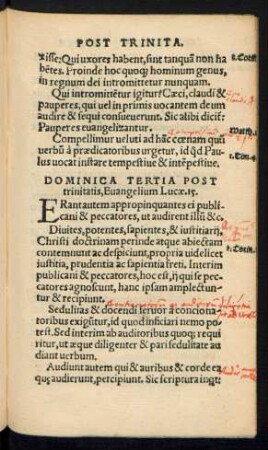 POST TRINITA.
xisse: Qui uxores habent, sint tanquã non ha
bẽtes. Proinde hoc quoqȝ hominum genus,
in regnum dei intromittetur nunquam.
Qui intromittẽtur igitur? Cæci, claudi &
pauperes, qui uel in primis uocantem deum
audire & sequi consueuerunt. Sic alibi dicit:
Pauperes euangelizantur.
Compellimur ueluti ad hãc cœnam quũ
uerbũ à prædicatoribus urgetur, id qd Pau
lus uocat instare tempestiue & intẽpestiue.
DOMINICA TERTIA POST
trinitatis, Euangelium Lucæ.15.
ERant autem appropinquantes ei publi
cani & peccatores, ut audirent illũ &c.
Diuites, potentes, sapientes, & iustitiarij,
Christi doctrinam perinde atque abiectam
contemnunt ac despiciunt, propria uidelicet
iustitia, prudentia ac sapientia freti. Interim
publicani & peccatores, hoc est, ij qui se pec
catores agnoscunt, hanc ipsam amplectun-
tur & recipiunt.
Sedulitas & docendi feruor à concionato
toribus exigitur, id quod inficiari nemo po-
test. Sed interim ab auditoribus quoqȝ requi
ritur, ut æque diligenter & pari sedulitate au
diant uerbum.
Audiunt autem qui & auribus & corde ea
quę audierunt, percipiunt. Sic scriptura inqt: